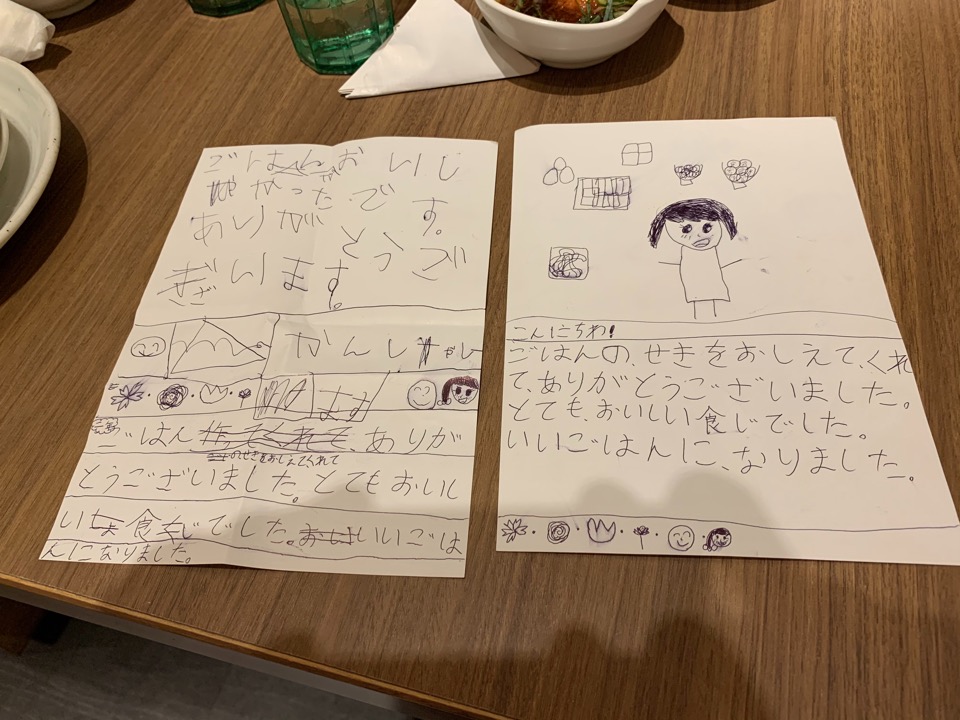 ごはんおいし
かったです。
ありがとうご
ざいます。
かんしゃし
ます
ごはん作ってくれて、ありが
のせきをおしえてくれて
とうございました。とてもおいし
い食じでした。いいごは
んになりました。
こんにちわ!
ごはんの、せきをおしえて、くれ
て、ありがとうございました。
とても、おいしい食じでした。
いいごはんに、なりました。